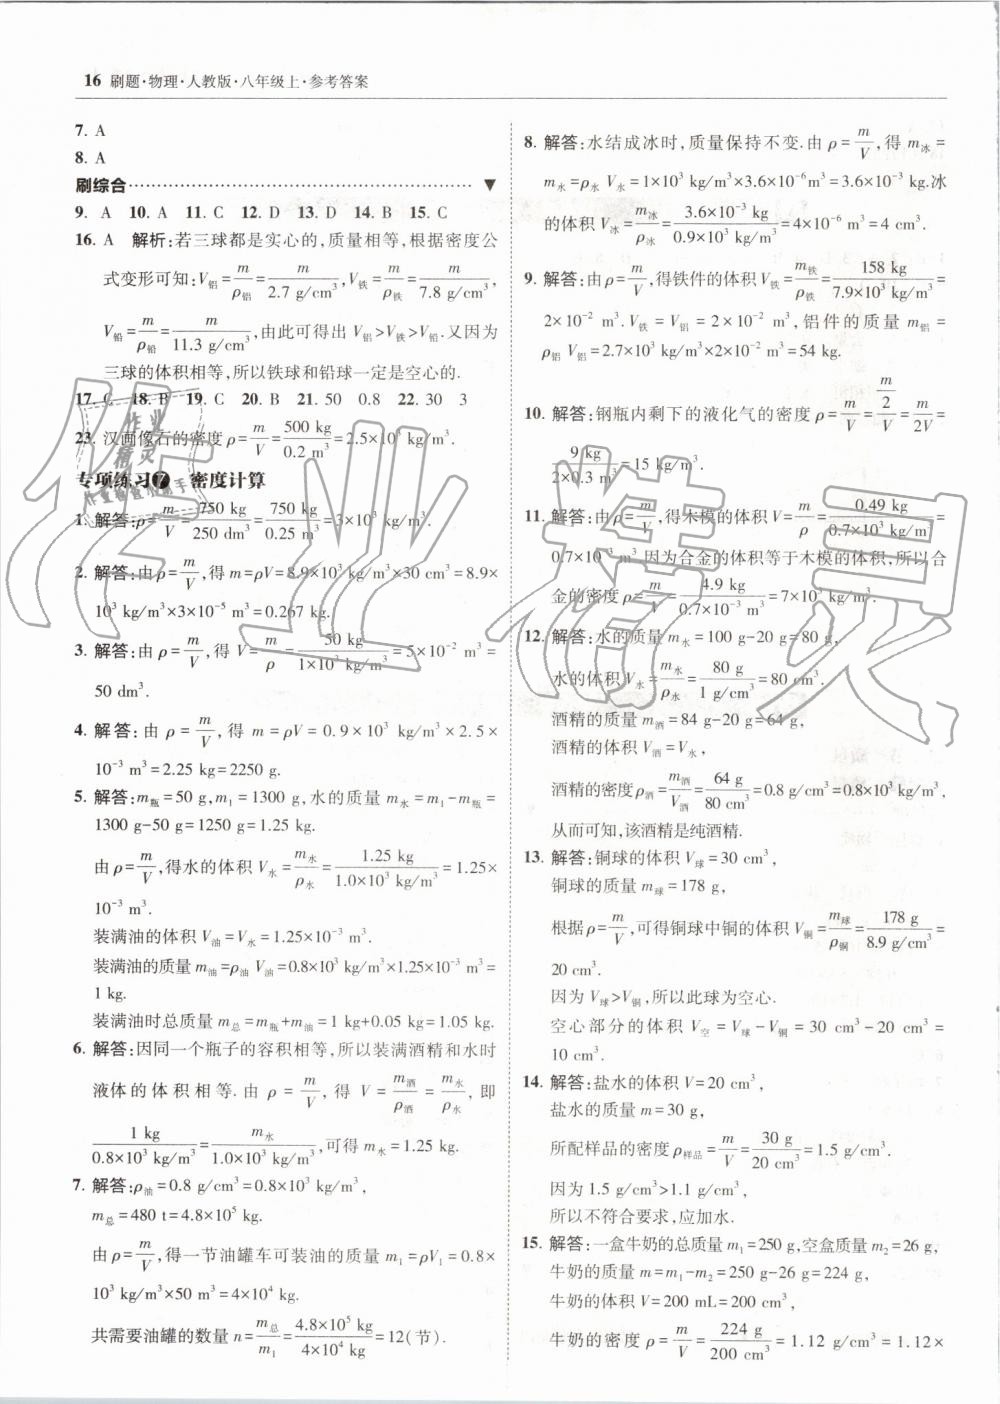 16 刷题·物理·人教版·八年级上·参考答案
7. A
8. A
刷综合 ▼
9. A 10. A 11. C 12. D 13. D 14. B 15. C
16. A 解析:若三球都是实心的,质量相等,根据密度公
式变形可知:V铝=m/ρ铝=m/2.7 g/cm³,V铁=m/ρ铁=m/7.8 g/cm³,
V铅=m/ρ铅=m/11.3 g/cm³,由此可得出 V铝>V铁>V铅.又因为
三球的体积相等,所以铁球和铅球一定是空心的.
17. C 18. B 19. C 20. B 21. 50 0.8 22. 30 3
23. 汉画像石的密度ρ=m/V=500 kg/0.2 m³=2.5×10³ kg/m³.
专项练习7 密度计算
1. 解答:ρ=m/V=750 kg/250 dm³=750 kg/0.25 m³=3×10³ kg/m³.
2. 解答:由ρ=m/V,得 m=ρV=8.9×10³ kg/m³×30 cm³=8.9×
10³ kg/m³×3×10⁻⁵ m³=0.267 kg.
3. 解答:由ρ=m/V,得 V=m/ρ=50 kg/1×10³ kg/m³=5×10⁻² m³=
50 dm³.
4. 解答:由 ρ=m/V,得 m=ρV=0.9×10³ kg/m³×2.5×
10⁻³ m³=2.25 kg=2250 g.
5. 解答:m瓶=50 g,m₁=1300 g,水的质量 m水=m₁-m瓶=
1300 g-50 g=1250 g=1.25 kg.
由ρ=m/V,得水的体积 V水=m水/ρ水=1.25 kg/1.0×10³ kg/m³=1.25×
10⁻³ m³.
装满油的体积 V油=V水=1.25×10⁻³ m³.
装满油的质量 m油=ρ油 V油=0.8×10³ kg/m³×1.25×10⁻³ m³=
1 kg.
装满油时总质量 m总=m瓶+m油=1 kg+0.05 kg=1.05 kg.
6. 解答:因同一个瓶子的容积相等,所以装满酒精和水时
液体的体积相等.由 ρ=m/V,得 V=m酒/ρ酒=m水/ρ水,即
1 kg/0.8×10³ kg/m³=m水/1.0×10³ kg/m³,可得 m水=1.25 kg.
7. 解答:ρ油=0.8 g/cm³=0.8×10³ kg/m³,
m总=480 t=4.8×10⁵ kg.
由ρ=m/V,得一节油罐车可装油的质量 m₁=ρV₁=0.8×
10³ kg/m³×50 m³=4×10⁴ kg.
共需要油罐的数量 n=m总/m₁=4.8×10⁵ kg/4×10⁴ kg=12(节).
8. 解答:水结成冰时,质量保持不变.由ρ=m/V,得 m冰=
m水=ρ水 V水=1×10³ kg/m³×3.6×10⁻⁶m³=3.6×10⁻³ kg.冰
的体积 V冰=m冰/ρ冰=3.6×10⁻³ kg/0.9×10³ kg/m³=4×10⁻⁶ m³=4 cm³.
9. 解答:由ρ=m/V,得铁件的体积 V铁=m铁/ρ铁=158 kg/7.9×10³ kg/m³=
2×10⁻² m³.V铁=V铝=2×10⁻² m³,铝件的质量 m铝=
ρ铝 V铝=2.7×10³ kg/m³×2×10⁻² m³=54 kg.
10. 解答:钢瓶内剩下的液化气的密度 ρ=m/V=(m/2)/V=m/2V=
9 kg/2×0.3 m³=15 kg/m³.
11. 解答:由ρ=m/V,得木模的体积 V=m/ρ=0.49 kg/0.7×10³ kg/m³=
0.7×10⁻³ m³.因为合金的体积等于木模的体积,所以合
金的密度ρ=m/V=4.9 kg/0.7×10⁻³ m³=7×10³ kg/m³.
12. 解答:水的质量 m水=100 g-20 g=80 g,
水的体积 V水=m水/ρ水=80 g/1 g/cm³=80 cm³.
酒精的质量 m酒=84 g-20 g=64 g,
酒精的体积 V酒=V水,
酒精的密度ρ酒=m酒/V酒=64 g/80 cm³=0.8 g/cm³=0.8×10³ kg/m³,
从而可知,该酒精是纯酒精.
13. 解答:铜球的体积 V球=30 cm³,
铜球的质量 m球=178 g,
根据ρ=m/V,可得铜球中铜的体积 V铜=m球/ρ铜=178 g/8.9 g/cm³=
20 cm³.
因为 V球>V铜,所以此球为空心.
空心部分的体积 V空=V球-V铜=30 cm³-20 cm³=
10 cm³.
14. 解答:盐水的体积 V=20 cm³,
盐水的质量 m=30 g,
所配样品的密度 ρ样品=m/V=30 g/20 cm³=1.5 g/cm³.
因为 1.5 g/cm³>1.1 g/cm³,
所以不符合要求,应加水.
15. 解答:一盒牛奶的总质量 m₁=250 g,空盒质量 m₂=26 g,
牛奶的质量 m=m₁-m₂=250 g-26 g=224 g,
牛奶的体积 V=200 mL=200 cm³,
牛奶的密度 ρ=m/V=224 g/200 cm³=1.12 g/cm³=1.12×
作业精灵